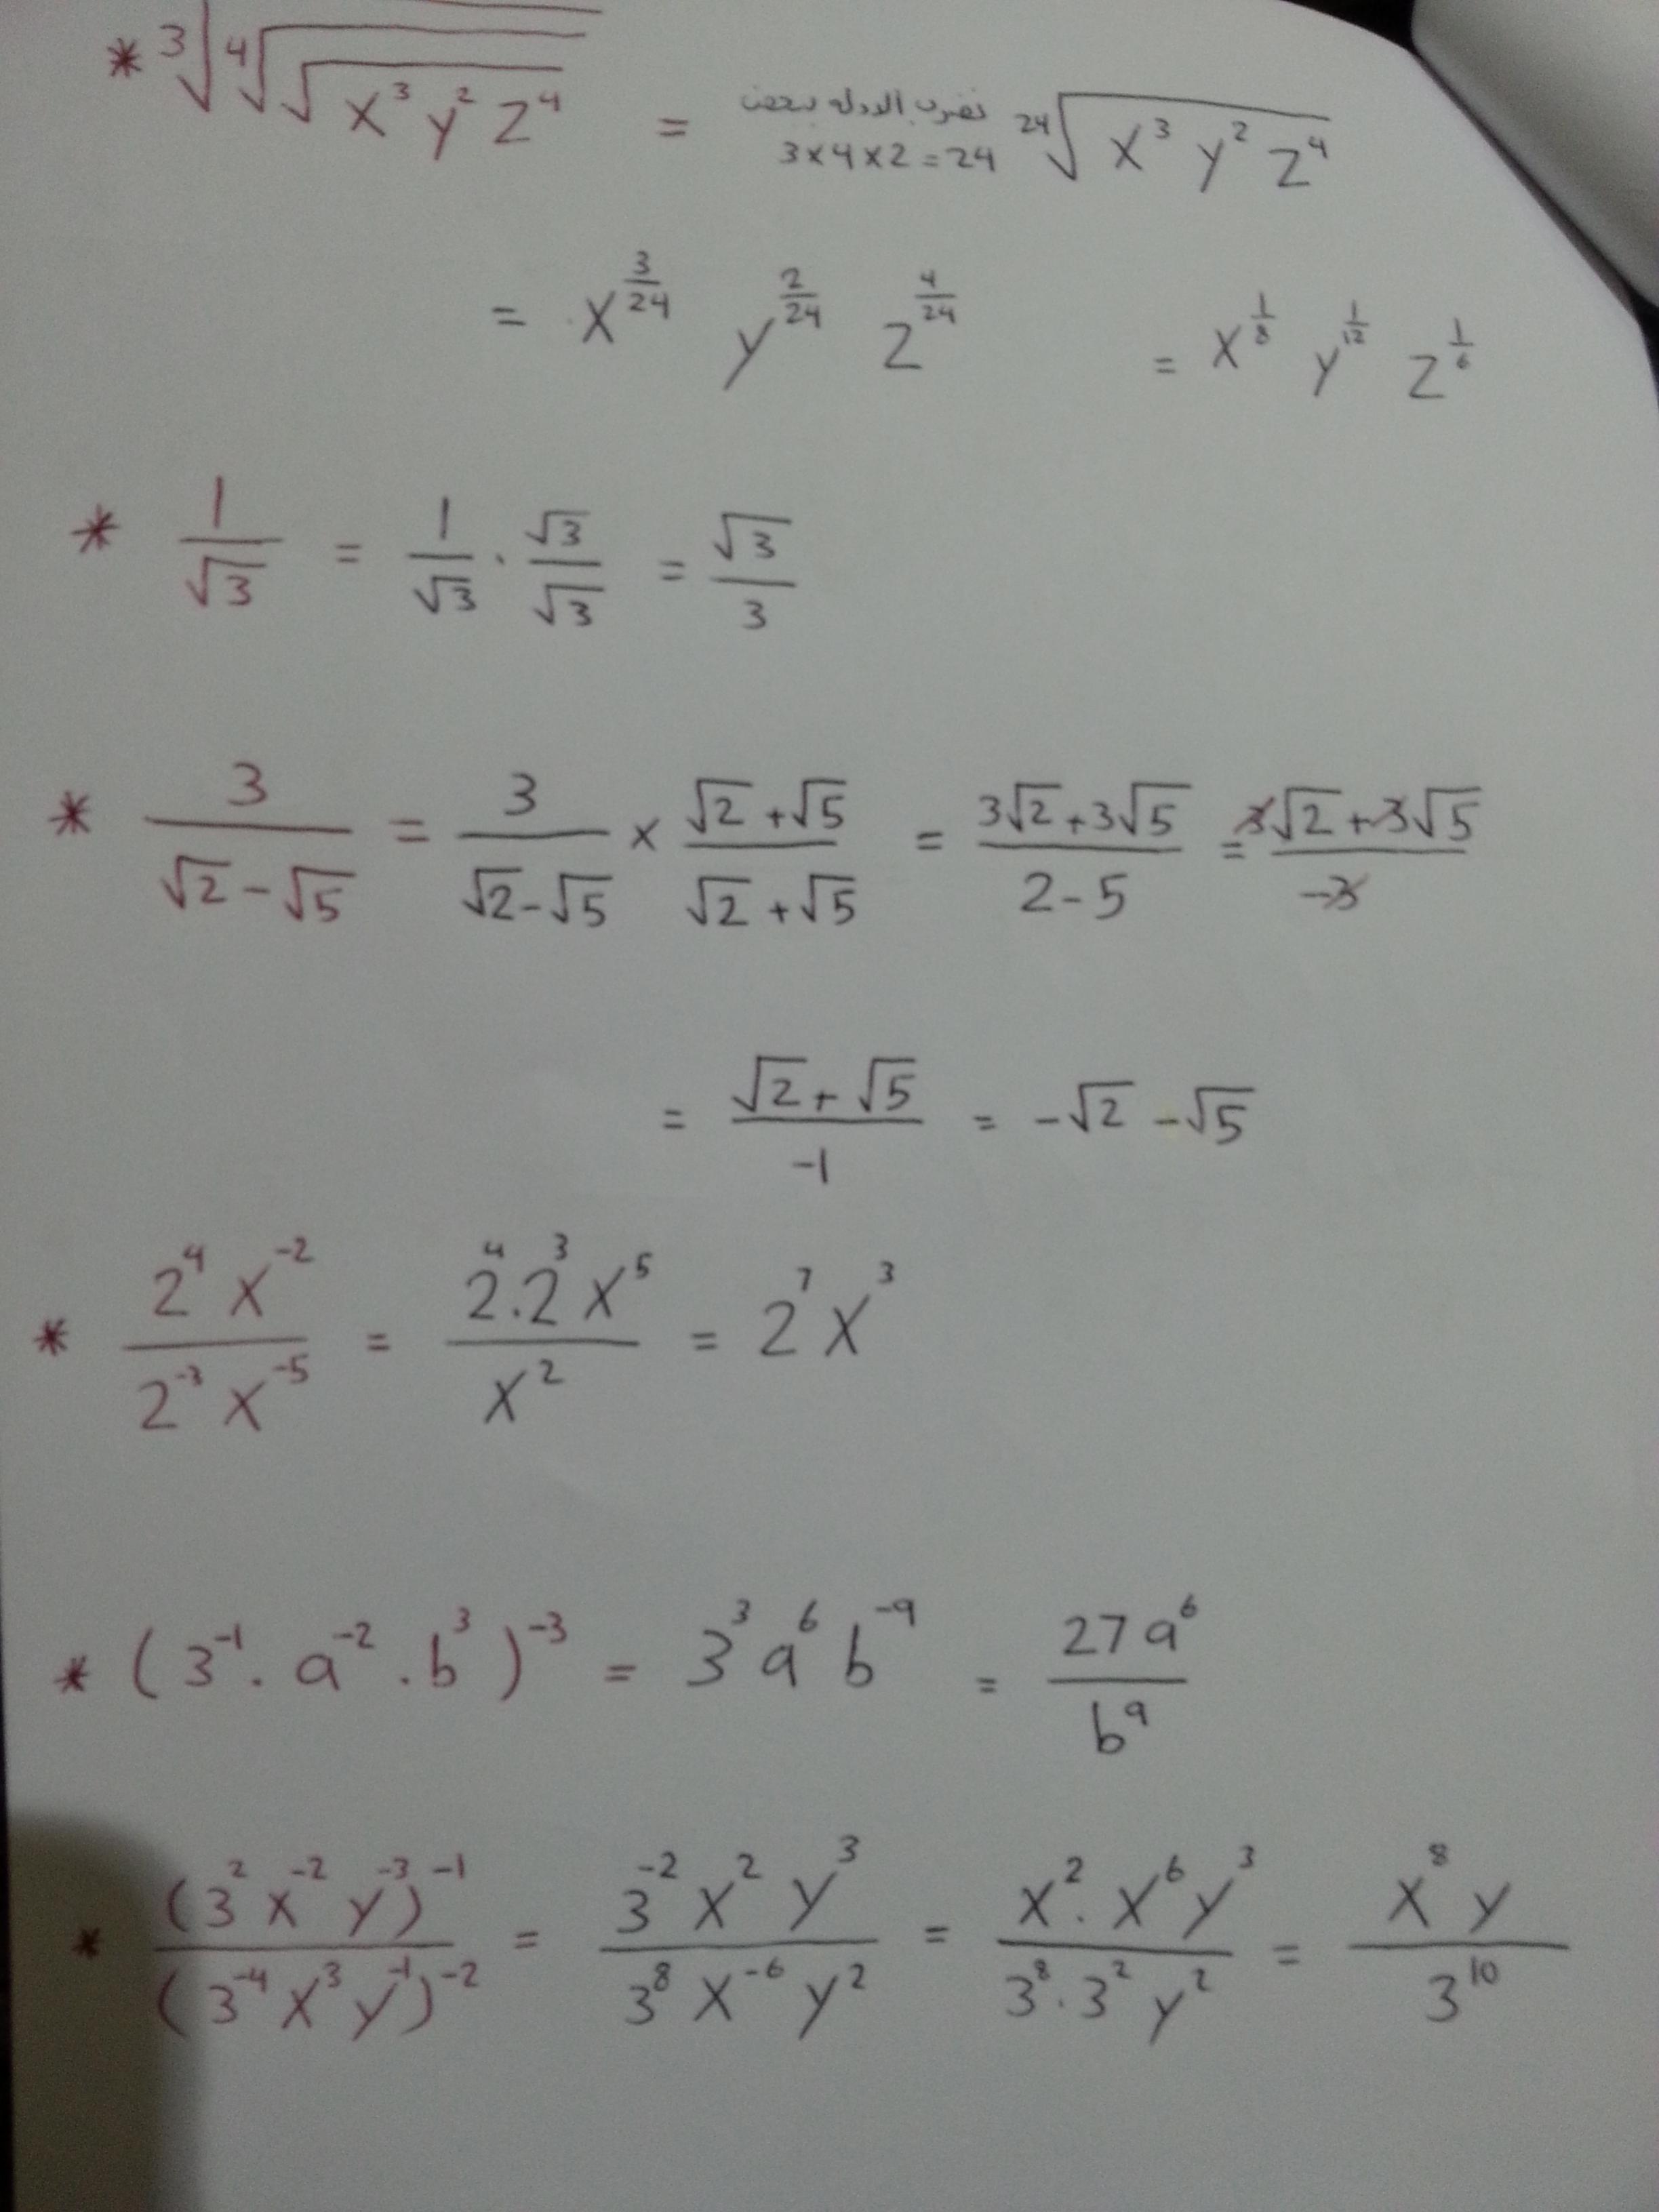 * ∛(∜(√(x³y²z⁴))) = نضرب الدلة ببعض ²⁴√(x³y²z⁴)
3×4×2=24
= x^(3/24) y^(2/24) z^(4/24) = x^(1/8) y^(1/12) z^(1/6)
* 1/√3 = 1/√3 · √3/√3 = √3/3
* 3/(√2-√5) = 3/(√2-√5) × (√2+√5)/(√2+√5) = (3√2+3√5)/(2-5) = (3√2+3√5)/(-3)
= (√2+√5)/(-1) = -√2-√5
* (2⁴x⁻²)/(2⁻³x⁻⁵) = (2⁴.2³x⁵)/(x²) = 2⁷x³
* (3⁻¹.a⁻².b³)⁻³ = 3³a⁶b⁻⁹ = 27a⁶/b⁹
* (3²x⁻²y⁻³)⁻¹/(3⁻⁴x³y⁻¹)⁻² = (3⁻²x²y³)/(3⁸x⁻⁶y²) = (x².x⁶y³)/(3⁸.3²y²) = x⁸y/3¹⁰